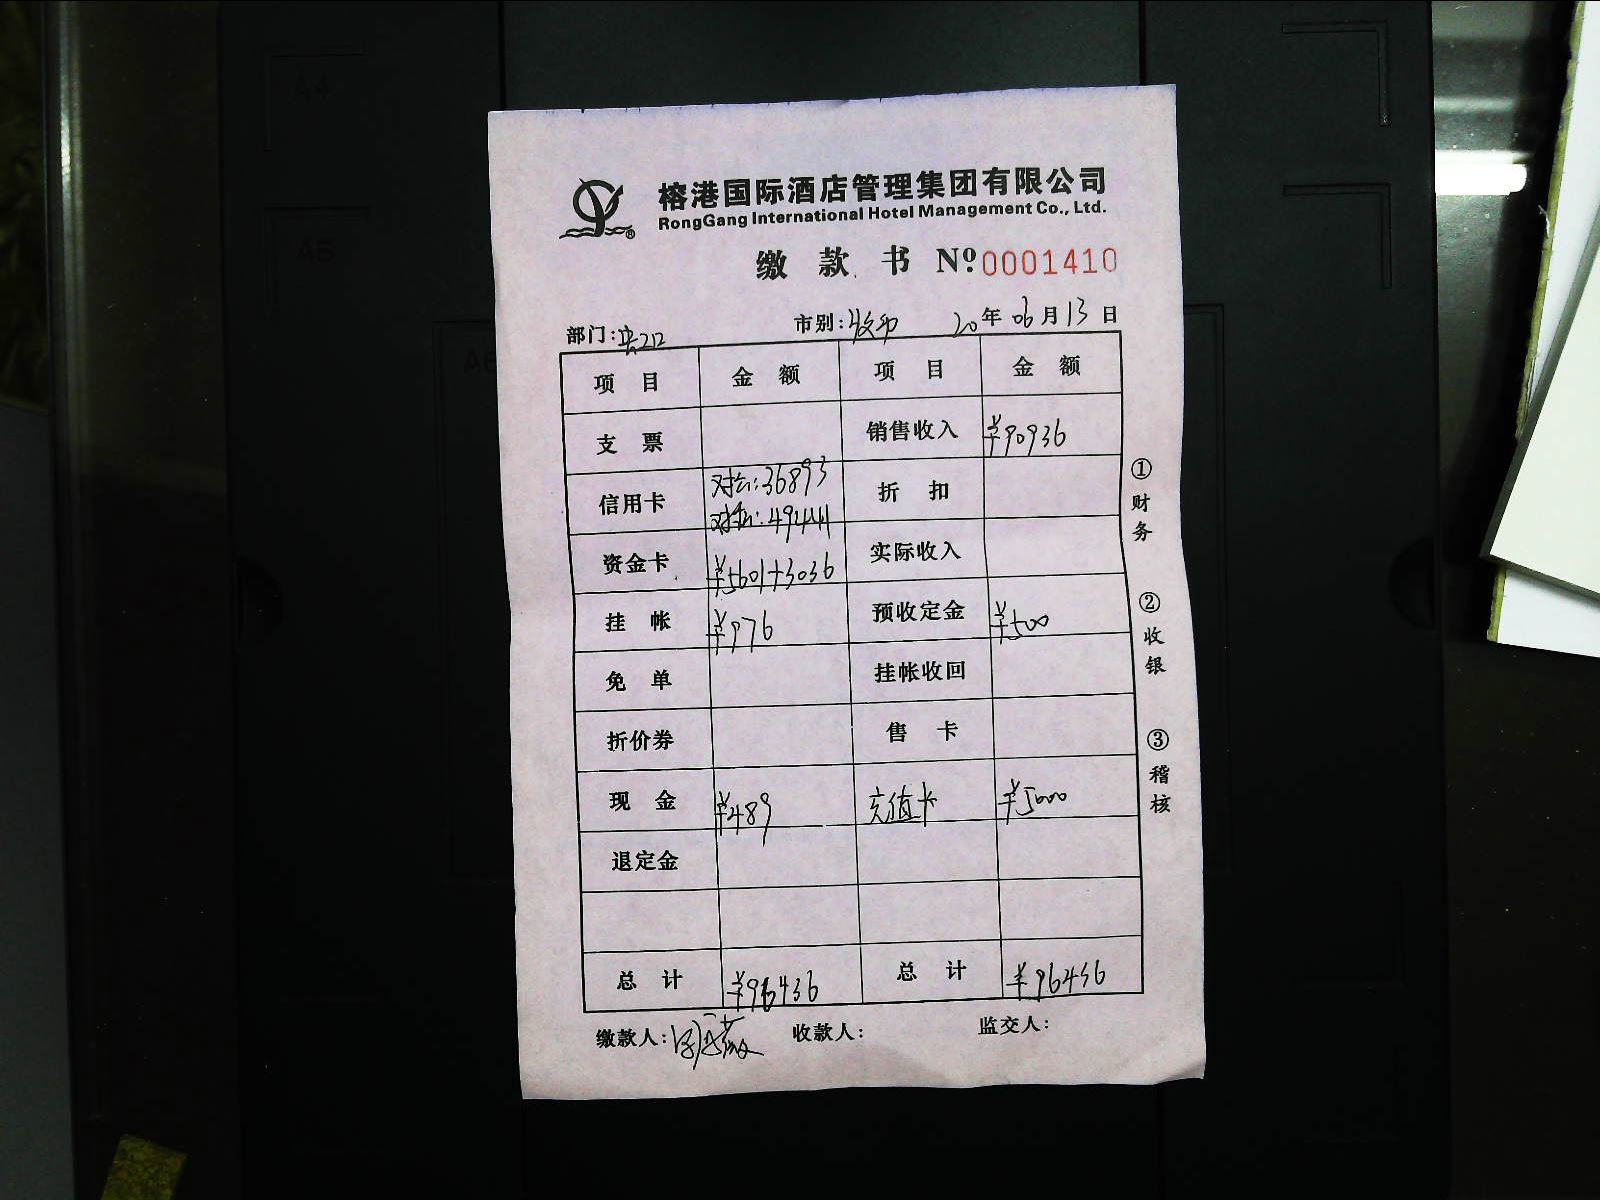 榕港国际酒店管理集团有限公司
RongGang International Hotel Management Co., Ltd.
缴款书 Nº 0001410
部门: 市别: 20年06月13日
项目 金额 项目 金额
支票 销售收入 ¥90936
信用卡 对公:36893 折扣
对私:49441
资金卡 ¥5601+3036 实际收入
挂帐 ¥976 预收定金 ¥500
免单 挂帐收回
折价券 售卡
现金 ¥489 充值卡 ¥5000
退定金
总计 ¥96436 总计 ¥96436
缴款人: 收款人: 监交人:
①财务
②收银
③稽核
A4
A5
A6